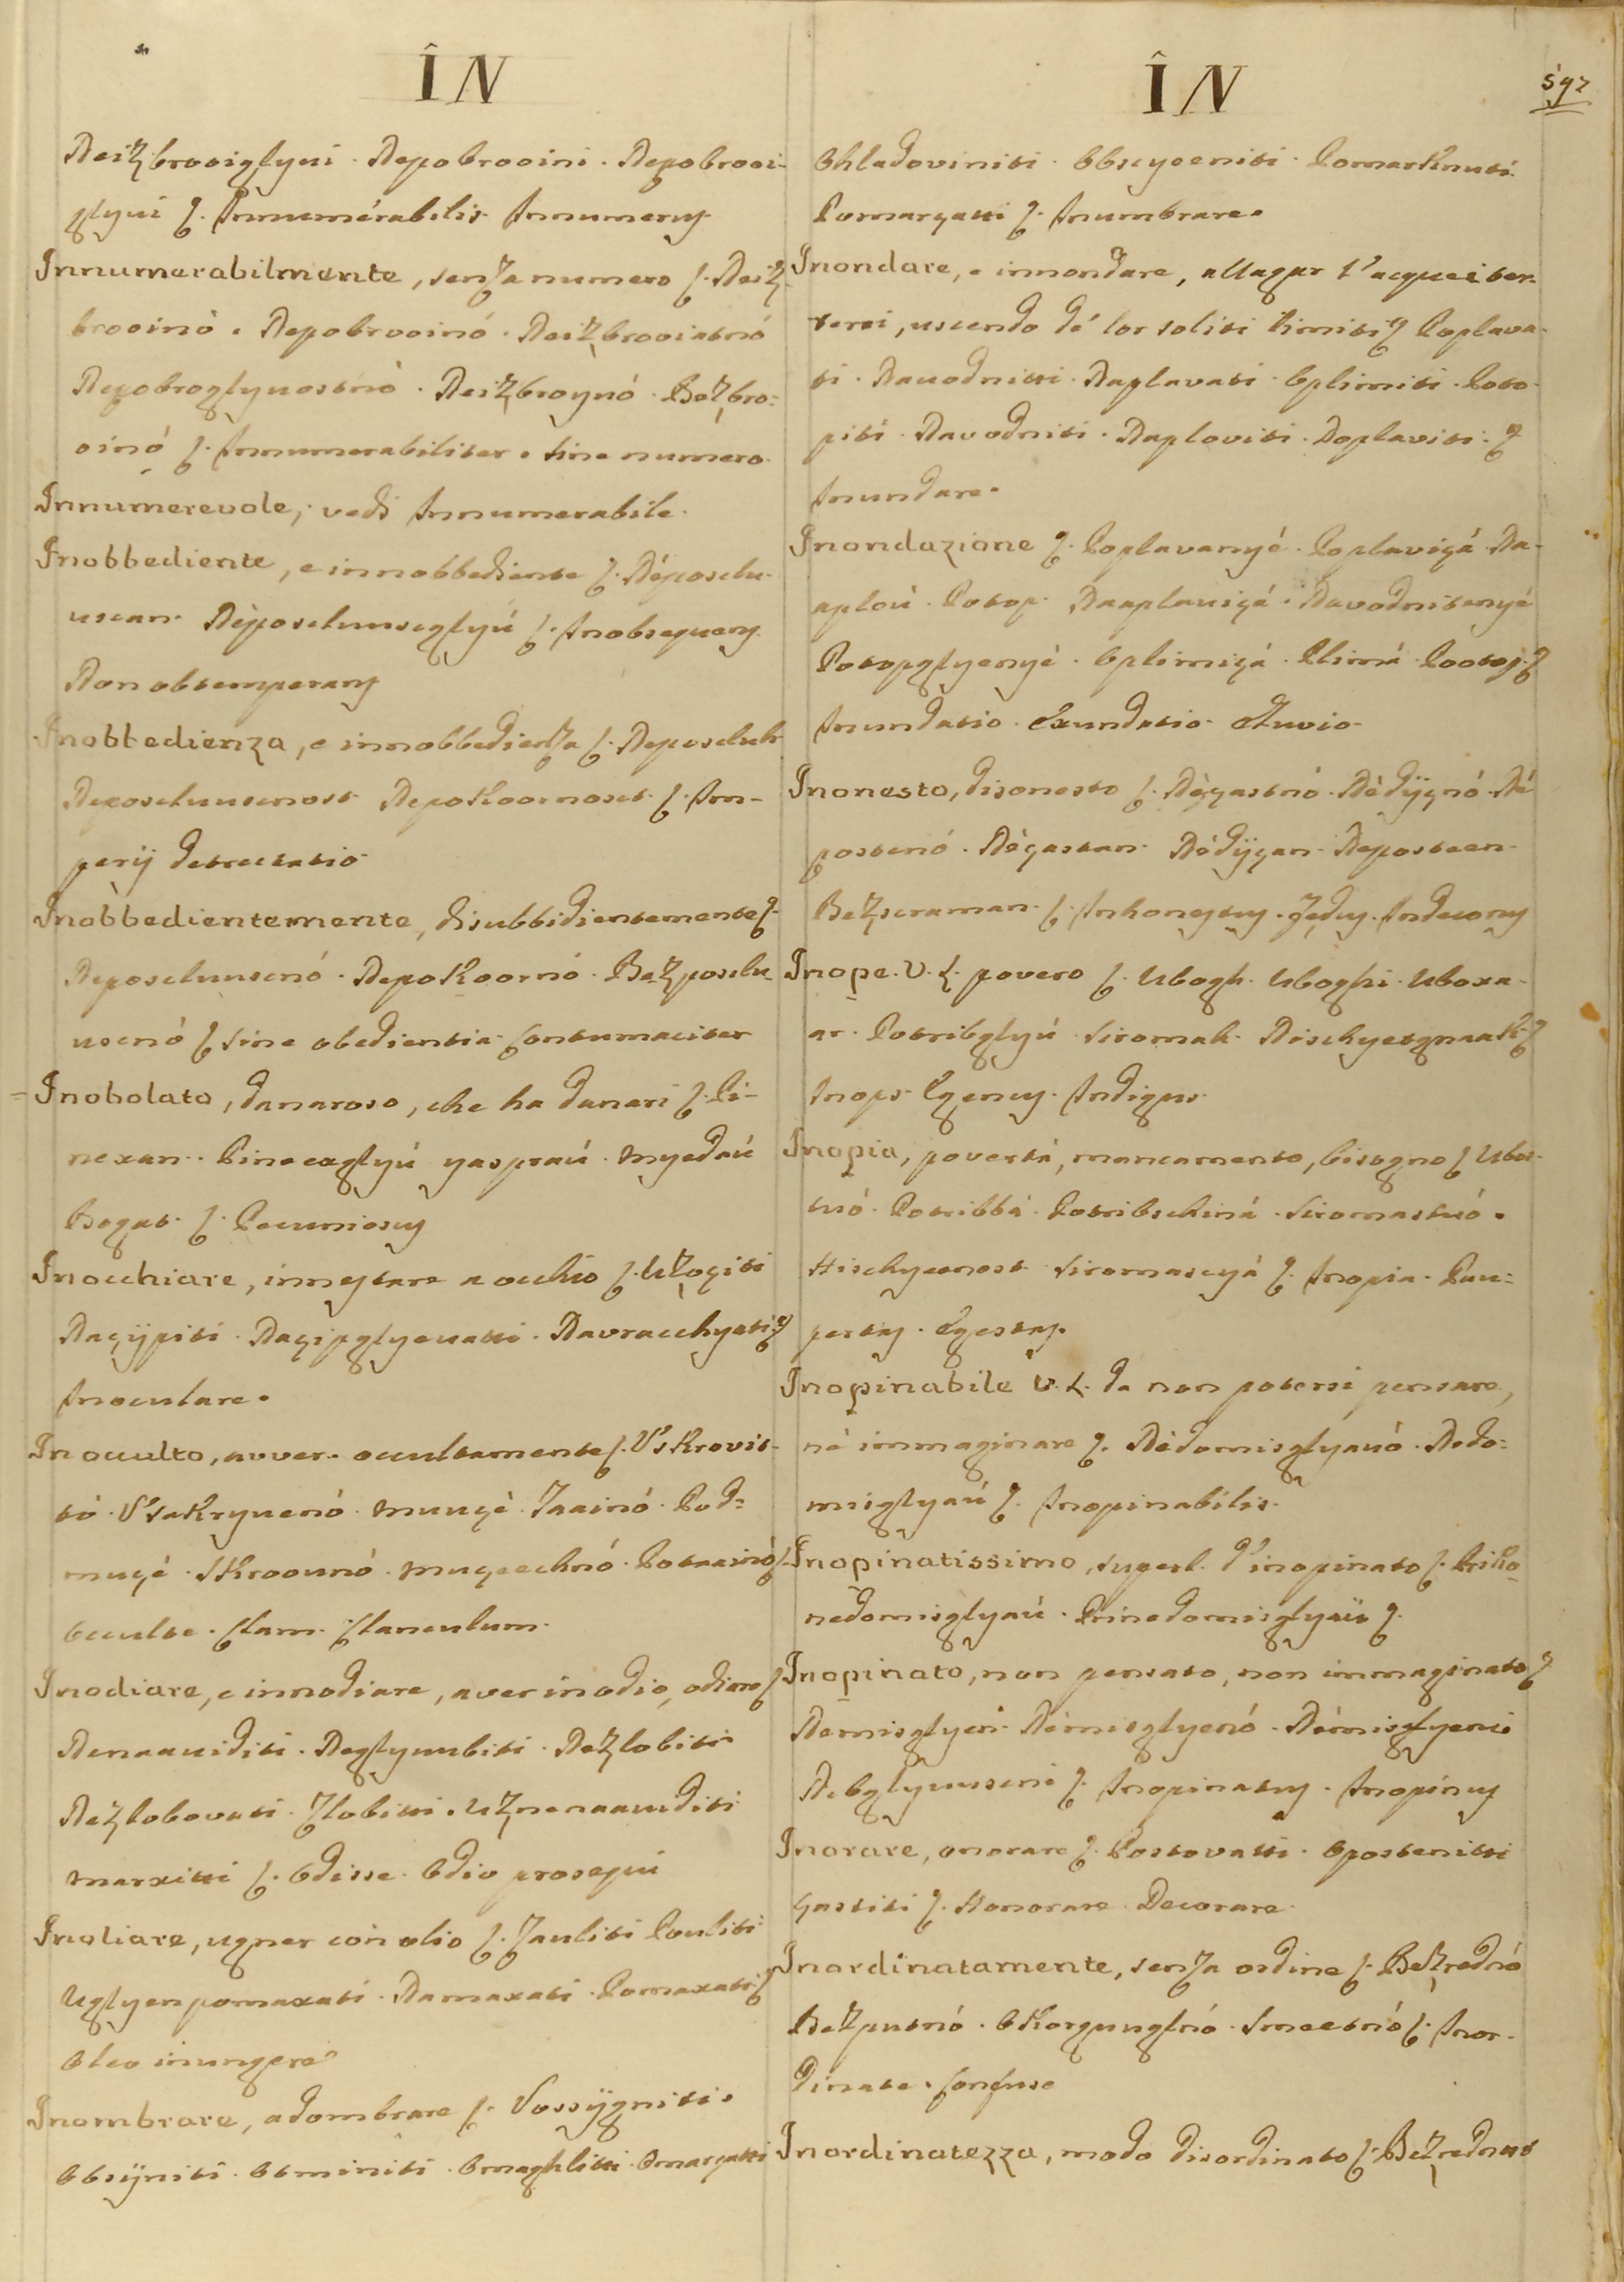 ÎN
Neizbrooiglyvi · Nepobrooini · Nepobrooi-
glyvi ſ. Innumerabilis Innumerus
Innumerabilmente, senza numero ſ. Neiz-
brooinò · Nepobrooinó · Neizbrooiatnó
Nepobroglyvostnò · Neizbroynó · Bezbro-
oinó ſ. Innumerabiliter · sine numero
Innumerevole, vedi Innumerabile.
Inobbediente, e innobbediente ſ. Néposclu-
uscan · Nèposcluuseglyú ſ. Inobsequens
Non obtemperans
Inobbedienza, e innobbedienza ſ. Neposcluh
Neposcluuscnost Nepokoornost ſ. Im-
perij detrectatio
Inobbedientemente, disubbidientemente ſ.
Neposcluuscnó · Nepokoornó · Bezposclu-
uscnó ſ sine obedientia contumaciter
Inobolato, danaroso, che ha danari ſ. Pi-
nexan · Pineexglyú yaspraú · Myedaú
Bogat · ſ. Pecuniosus
Inocchiare, innestare a occhio ſ. Uzoçiti
Naçijpiti · Naçipglyevatti · Navracchyati ſ
Inoculare ·
In occulto, avver. occultamente ſ. U's krovit-
tó · U'sakryvenó · Muuçè · Taainó · Pod-
muçé · Skroounó · Muçeechnó · Potaainó ſ
Occulte · Clam · Clanculum ·
Inodiare, e innodiare, aver in odio, odiare ſ
Nenaaviditi · Neglyuubiti · Nezlobiti
Nezlobovati · Zlobitti · Uznenaaviditi
Marxitti ſ. Odisse · Odio prosequi
Inoliare, ugner con olio ſ. Zauliti Pouliti
Uglyenpomaxati · Namaxati · Pomaxati ſ
Oleo inungere
Inombrare, adombrare ſ. Sossijgniti ·
Obsijniti · Otminiti · Omaghlitti · Omarçatti
ÎN
592
Ohladoviniti · Obscyeeniti · Pomarknuti
Pomarçatti ſ. Inumbrare ·
Inondare, e innondare, allagar l'acque i ter-
reni, uscendo dé lor soliti limiti ſ Poplava-
ti · Navodnitti · Naplavati · Oplimiti · Poto-
piti · Navodniti · Naploviti · Doplaviti · ſ
Inundare ·
Inondazione ſ. Poplavanyé · Poplaviçá · Na-
aploú · Potop · Naaplaviçá · Navodnitenyé
Potopglyenyè · Oplimiçá · Plimá · Pootop · ſ
Inundatio · Exundatio · Eluvio ·
Inonesto, disonesto ſ. Nèçastnó · Nèdijçnó · Né
postenó · Nèçastan · Nédijçan · Neposteen ·
Bezscraman · ſ. Inhonestus · Fedus · Indecorus
Inope · V. L. povero ſ. Ubogh · Uboghi · Uboxa-
ar · Potribglyú Siromah · Nischyetgnaak ſ
Inops · Egenus · Indigus ·
Inopia, povertà, mancamento, bisogno ſ Ubos-
tuó · Potribbá · Potribschiná · Siromastuó ·
Nischyetnost · Siromascyá ſ. Inopia · Pau-
pertas · Egestas ·
Inopinabile V. L. da non potersi pensare,
né immaginare ſ. Nèdomisglyauó · Nedo-
misglyaú ſ. Inopinabilis ·
Inopinatissimo, superl. d'inopinato ſ. Priko
nedomisglyaú · Prinedomisglyaü ſ.
Inopinato, non pensato, non immaginato ſ
Nemisglyen · Némisglyenó · Némisglyeni
Inopinatus · Inopinus
Inorare, onorare ſ. Postovatti · Oposteniti
çastiti ſ. Honorare · Decorare ·
Inordinatamente, senza ordine ſ. Bezrednó
Bezputnó · Smeetnó ſ. Inor-
dinate · Confuse
Inordinatezza, modo disordinato ſ. Bezrednost